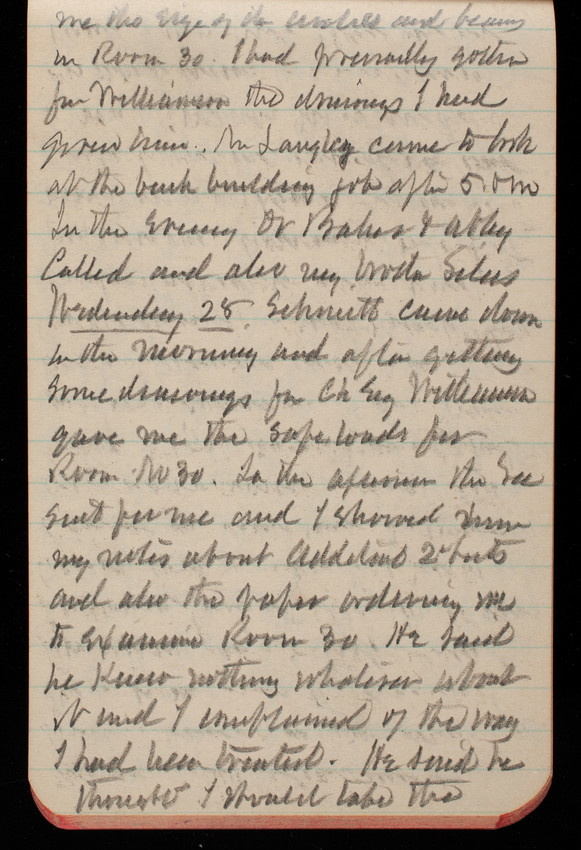 me the size of the arches and beams
in Room 30. I had previously gotten
for Williamson the drawings I had
given him. Mr Langley came to look
at the bank building job after 5 PM
In the Evening Dr Baker & Abby
Called and also my brother Silas
Wednesday 28. Schmitt came down
in the morning and after getting
some drawings for Ch Eng Williamson
gave me the safe loads for
Room No 30. In the afternoon the Sec
sent for me and I showed him
my notes about Addition
and also the paper ordering me
to examine Room 30. He said
he knew nothing whatever about
it and I complained of the way
I had been treated. He said he
thought I should take the